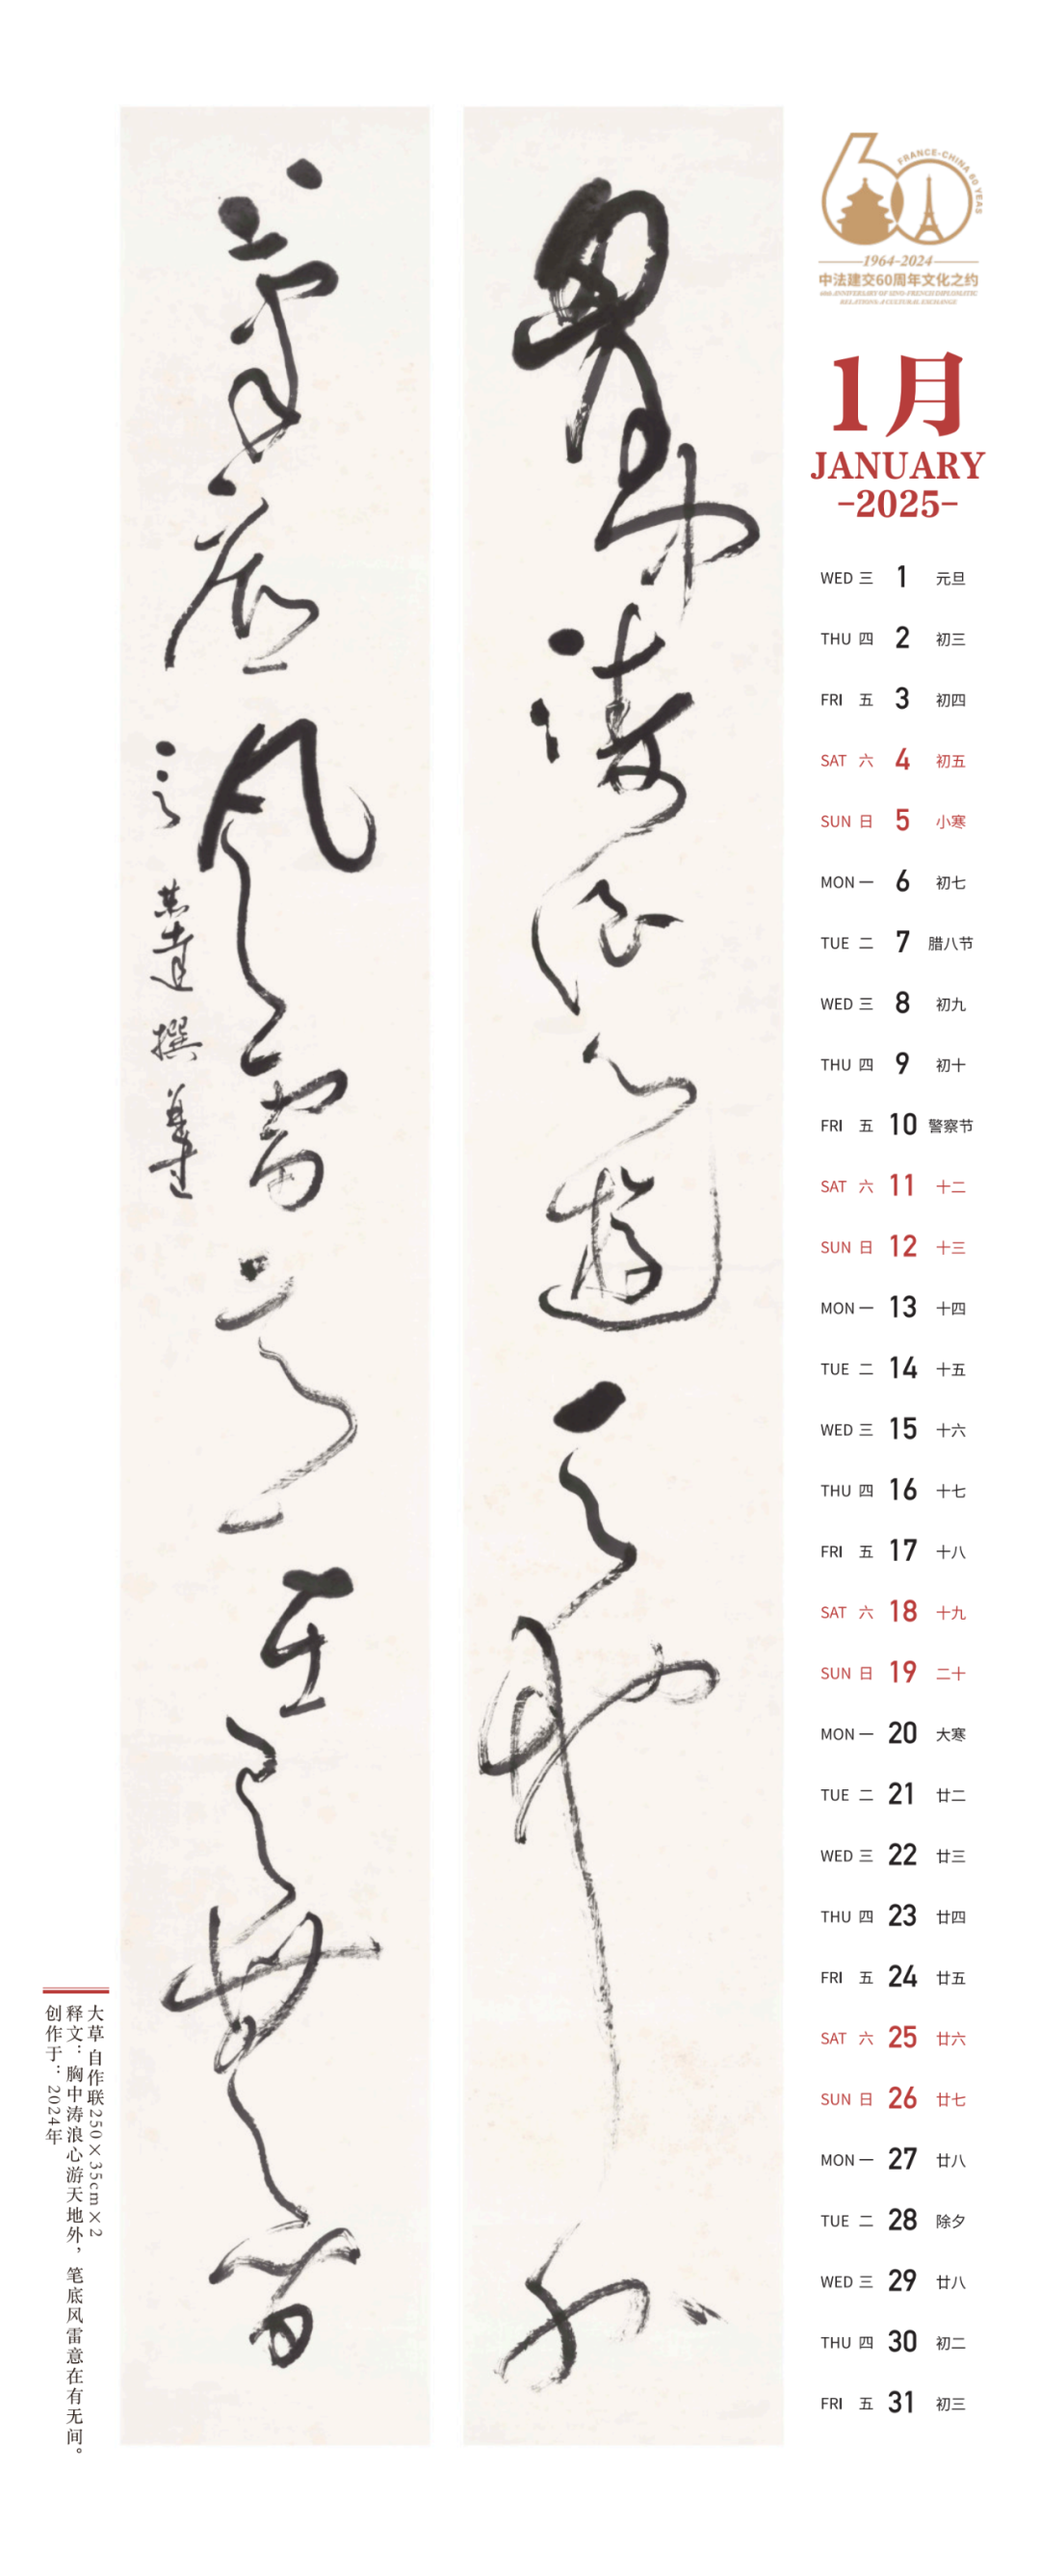 FRANCE-CHINA 60 YEAS
1964-2024
中法建交60周年文化之约
60th ANNIVERSARY OF SINO-FRENCH DIPLOMATIC
RELATIONS: A CULTURAL EXCHANGE
1月
JANUARY
-2025-
WED 三 1 元旦
THU 四 2 初三
FRI 五 3 初四
SAT 六 4 初五
SUN 日 5 小寒
MON 一 6 初七
TUE 二 7 腊八节
WED 三 8 初九
THU 四 9 初十
FRI 五 10 警察节
SAT 六 11 十二
SUN 日 12 十三
MON 一 13 十四
TUE 二 14 十五
WED 三 15 十六
THU 四 16 十七
FRI 五 17 十八
SAT 六 18 十九
SUN 日 19 二十
MON 一 20 大寒
TUE 二 21 廿二
WED 三 22 廿三
THU 四 23 廿四
FRI 五 24 廿五
SAT 六 25 廿六
SUN 日 26 廿七
MON 一 27 廿八
TUE 二 28 除夕
WED 三 29 廿八
THU 四 30 初二
FRI 五 31 初三
胸中涛浪心遊天地外
笔底风雷意在有无间
大草 自作联250×35cm×2
释文：胸中涛浪心游天地外，笔底风雷意在有无间。
创作于：2024年